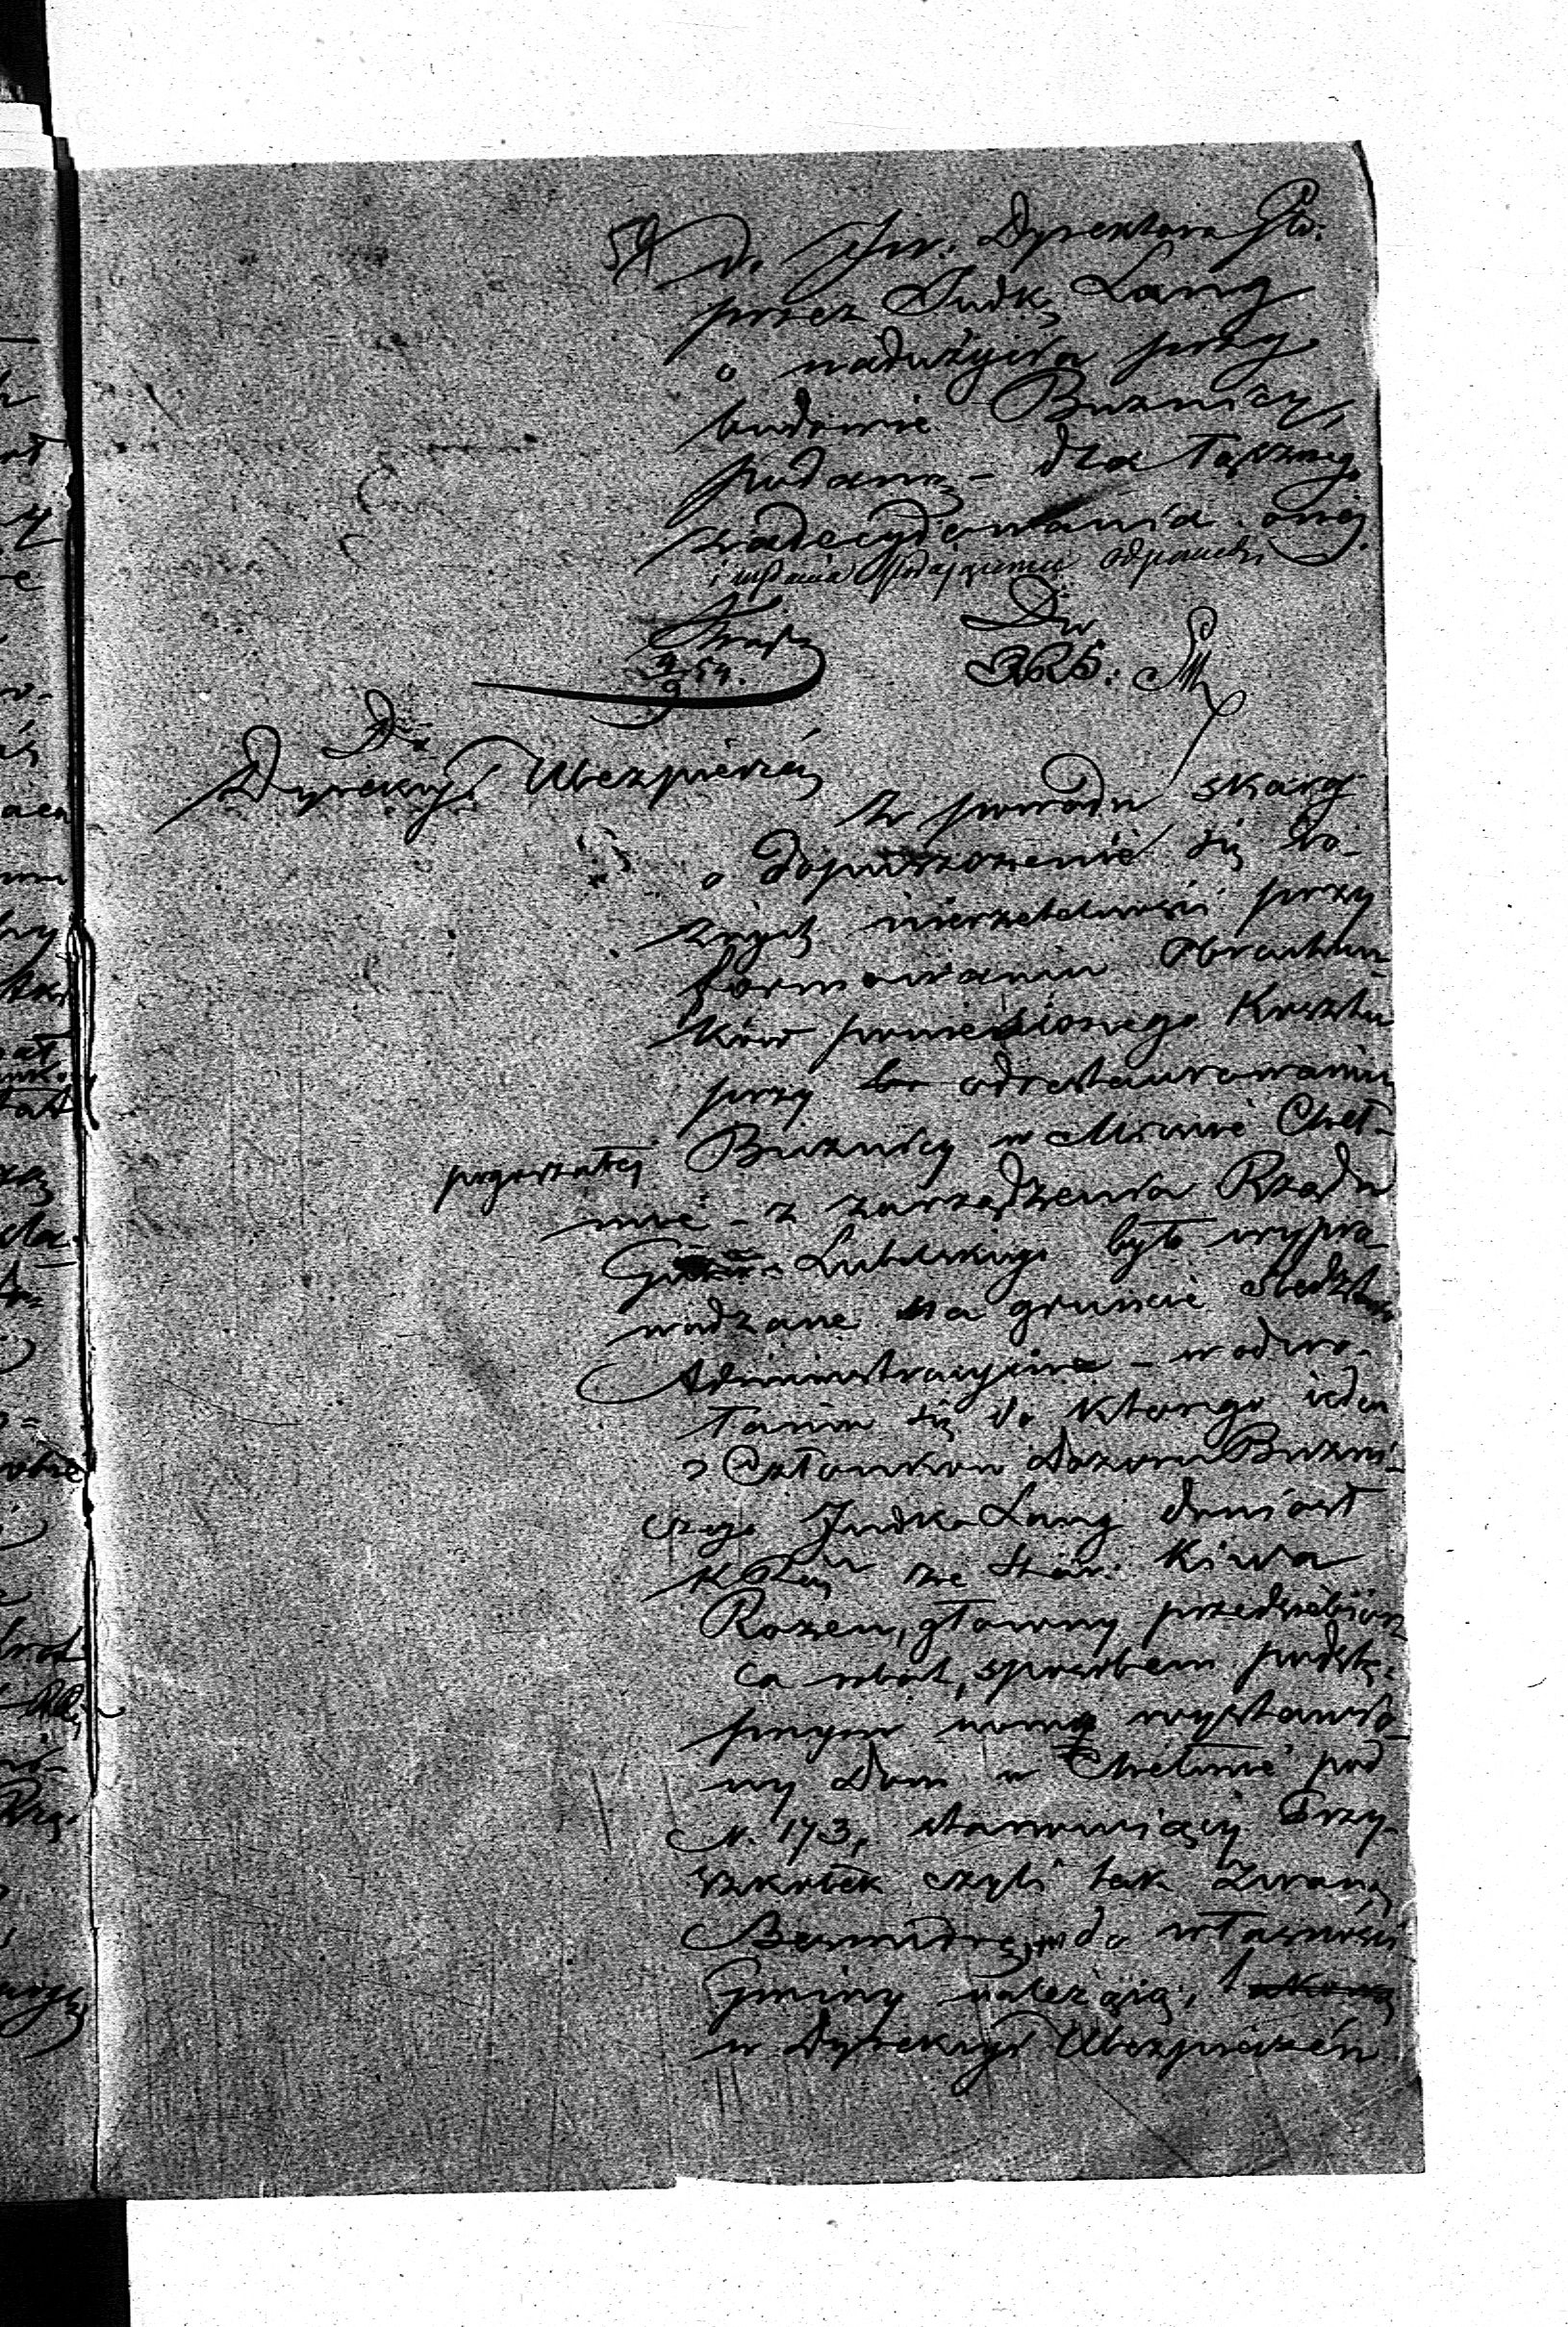 54 do JW. Dyrektora Gł:
przez Judkę Lang
o nadużycia przy
budowie Bużnicy,
podaną – dla łącznego
zadecydowania onej.
i wydania odpowiedzi
9/9 54.
Do
Dyrekcyi Ubezpieczeń
Z powodu skargi
o dopuszczenie się
nierzetelności przy
formowaniu Obrachun-
ków poniesionego Kosztu
przy odrestaurowaniu
pogorzałej Bużnicy w Mieście Cheł-
mie – z zarządzenia Rządu
Gub: Lubelskiego było wypro-
wadzane na gruncie Śledztwo
Administracyjne – w odwo-
łaniu się do którego ieden
z Członków Dozoru Bużni-
czego Judka Lang doniosł
że Star: Kiwa
Rozen, głowny przedsiębior-
ca robot, sposobem podstę-
pnym nowo wystawio-
ny Dom w Chełmie pod
N. 173, stanowiący Przy-
szkołek czyli tak zwaną
do własności
Gminy należącą,
w Dyrekcyi Ubezpieczeń